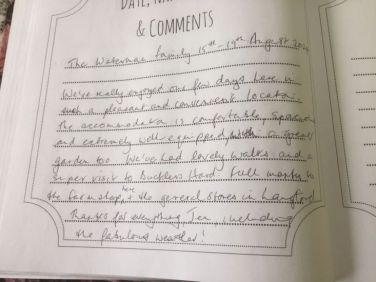 DATE, NA
& COMMENTS
The Waterman family 15th - 19th August 20
We've really enjoyed our few days here in
such a pleasant and convenient location.
The accommodation is comfortable,
and extremely well equipped, with a great
garden too. We've had lovely walks and a
super visit to Bucklers Hard. Full marks to
the farm shop here, & the general stores in
Thanks for everything Jen including
the fabulous weather!